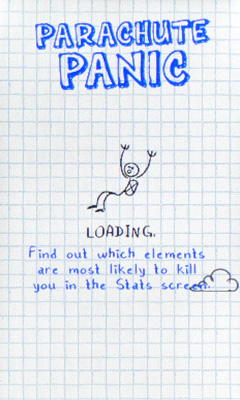 PARACHUTE
PANIC
LOADING.
Find out which elements
are most likely to kill
you in the Stats screen.